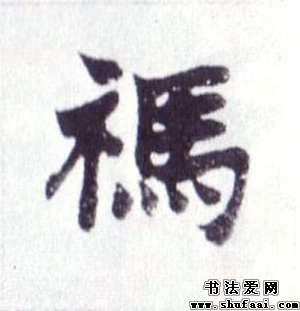 禡
书法爱网
www.shufaai.com